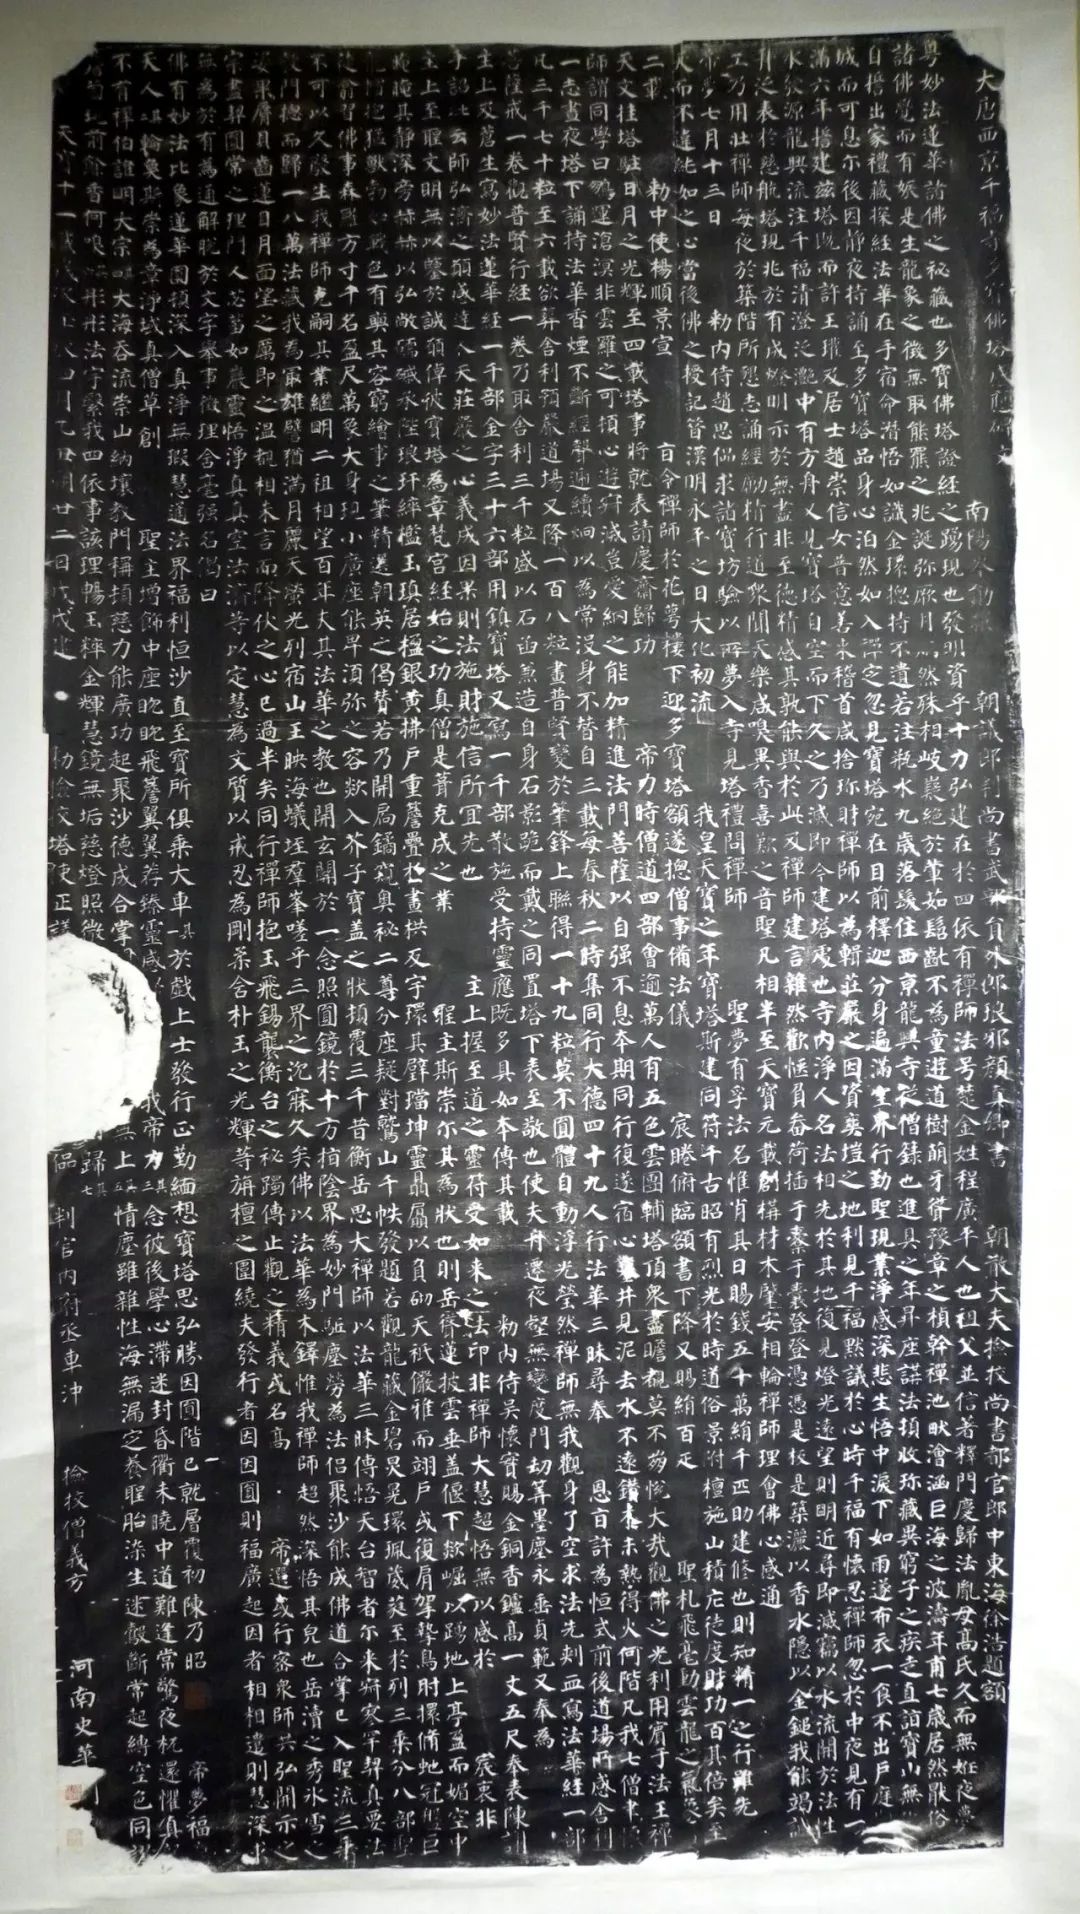 大唐西京千福寺多寶佛塔感應碑文 南陽岑勛撰 朝議郎判尚書武部員外郎琅邪顏真卿書 朝散大夫撿挍尚書都官郎中東海徐浩題額
粵妙法蓮華諸佛之祕藏也多寶佛塔證經之踴現也發明資乎十力弘建在於四依有禪師法号楚金姓程廣平人也祖父並信著釋門慶歸法胤母高氏久而無姙夜夢
諸佛覺而有娠是生龍象之徵無取熊羆之兆誕弥厥月炳然殊相岐嶷絕於葷茹髫齔不為童遊道樹萌牙聳豫章之楨幹禪池畎澮涵巨海之波濤年甫七歲居然厭俗
自誓出家禮藏探經法華在手宿命潛悟如識金環揔持不遺若注瓶水九歲落髮住西京龍興寺從僧籙也進具之年昇座講法頓收珎藏異窮子之疾走直詣寶山無
城而可息尒後因靜夜持誦至多寶塔品身心泊然如入禪定忽見寶塔宛在目前釋迦分身遍滿空界行勤聖現業淨感深悲生悟中淚下如雨遂布衣一食不出戶庭
滿六年誓建茲塔既而許王瓘及居士趙崇信女普意善來稽首咸捨珎財禪師以為輯莊嚴之因資爽塏之地利見千福默議於心時千福有懷忍禪師忽於中夜見有一
水發源龍興流注千福清澄泛灩中有方舟又見寶塔自空而下久之乃滅即今建塔處也寺內淨人名法相先於其地復見燈光遠望則明近尋即滅竊以水流開於法性
舟泛表於慈航塔現兆於有成燈明示於無盡非至德精感其孰能與於此及禪師建言雜然歡愜負畚荷插于橐于囊登登憑憑是板是築灑以香水隱以金鎚我能竭誠
工乃用壯禪師每夜於築階所懇志誦經勵精行道眾聞天樂咸嗅異香喜歎之音聖凡相半至天寶元載創構材木肇安相輪禪師理會佛心感通
帝夢七月十三日 勑內侍趙思偘求諸寶坊驗以所夢入寺見塔禮問禪師 聖夢有孚法名惟肖其日賜錢五十萬絹千匹助建修也則知精一之行雖先
天而不違純如之心當後佛之授記昔漢明永平之日大化初流 我皇天寶之年寶塔斯建同符千古昭有烈光於時道俗景附檀施山積庀徒度財功百其倍矣至
二載 勑中使楊順景宣 旨令禪師於花萼樓下迎多寶塔額遂揔僧事備法儀 宸睠俯臨額書下降又賜絹百疋 聖札飛毫動雲龍之氣象
天文挂塔駐日月之光輝至四載塔事將就表請慶齋歸功 帝力時僧道四部會逾萬人有五色雲團輔塔頂眾盡瞻覩莫不崩悅大哉觀佛之光利用賓于法王禪
師謂同學曰鵬運滄溟非雲羅之可頓心遊寂滅豈愛網之能加精進法門菩薩以自强不息本期同行復遂宿心鑿井見泥去水不遠鑽木未熱得火何階凡我七僧聿懷
一志晝夜塔下誦持法華香煙不斷經聲遞續炯以為常沒身不替自三載每春秋二時集同行大德四十九人行法華三昧尋奉 恩旨許為恒式前後道場所感舍利
凡三千七十粒至六載欲葬舍利預嚴道場又降一百八粒畫普賢變於筆鋒上聯得一十九粒莫不圓體自動浮光瑩然禪師無我觀身了空求法先刺血寫法華經一部
菩薩戒一卷觀普賢行經一卷乃取舍利三千粒盛以石函兼造自身石影跪而戴之同置塔下表至敬也使夫舟遷夜壑無變度門劫筭墨塵永垂貞範又奉為
主上及蒼生寫妙法蓮華經一千部金字三十六部用鎮寶塔又寫一千部散施受持靈應既多具如本傳其載 勑內侍吳懷實賜金銅香鑪高一丈五尺奉表陳謝
手詔批云師弘濟之願感達人天莊嚴之心義成因果則法施財施信所宜先也 主上握至道之靈符受如來之法印非禪師大慧超悟無以感於 宸衷非
主上至聖文明無以鑒於誠願倬彼寶塔為章梵宮經始之功真僧是葺克成之業 聖主斯崇尒其為狀也則岳聳蓮披雲垂蓋偃下欻崛以踊地上亭盈而媚空中
晻晻其靜深旁赫赫以弘敞礝磩承陛琅玕綷檻玉瑱居楹銀黃拂戶重簷疊於畫栱反宇環其璧璫坤靈贔屭以負砌天祇儼雅而翊戶或復肩挐摯鳥肘擐脩虵冠盤巨
龍帽抱猛獸勃如戰色有奭其容窮繪事之筆精選朝英之偈贊若乃開扃鐍窺奧祕二尊分座疑對鷲山千帙發題若觀龍藏金碧炅晃環珮葳蕤至於列三乘分八部聖
徒翕習佛事森羅方寸千名盈尺萬象大身現小廣座能卑須弥之容欻入芥子寶蓋之狀頓覆三千昔衡岳思大禪師以法華三昧傳悟天台智者尒來寂寥罕契真要法
不可以久廢生我禪師克嗣其業繼明二祖相望百年夫其法華之教也開玄關於一念照圓鏡於十方指陰界為妙門駈塵勞為法侶聚沙能成佛道合掌已入聖流三乘
教門揔而歸一八萬法藏我為冣雄譬猶滿月麗天螢光列宿山王映海蟻垤羣峯嗟乎三界之沉寐久矣佛以法華為木鐸惟我禪師超然深悟其皃也岳瀆之秀冰雪之
姿果脣貝齒蓮目月面望之厲即之溫覩相未言而降伏之心已過半矣同行禪師抱玉飛錫襲衡台之祕躅傳止觀之精義或名高 帝選或行密眾師共弘開示之
宗盡契圓常之理門人苾蒭如巖靈悟淨真真空法濟等以定慧為文質以戒忍為剛柔含朴玉之光輝等旃檀之圍繞夫發行者因因圓則福廣起因者相相遣則慧深求
無為於有為通解脫於文字舉事徵理含毫强名偈曰
佛有妙法比象蓮華圓頓深入真淨無瑕慧通法界福利恒沙直至寶所俱乘大車其一 於戲上士發行正勤緬想寶塔思弘勝因圓階已就層覆初陳乃昭 帝夢福
天人其二 輪奐斯崇為章淨域真僧草創 聖主增飾中座眈眈飛簷翼翼荐臻靈感 我帝力其三 念彼後學心滯迷封昏衢未曉中道難逢常驚夜杌還懼真
不有禪伯誰明大宗其四 大海吞流崇山納壤教門稱頓慈力能廣功起聚沙德成合掌 無上其五 情塵雖雜性海無漏定養聖胎染生迷鷇斷常起縛空色同謬
蔔現前餘香何嗅其六 彤彤法宇繄我四依事該理暢玉粹金輝慧鏡無垢慈燈照微 歸其七
天寶十一載歲次壬辰四月乙丑朔廿二日戊戌建 勑撿挍塔使正議 判官內府丞車冲 撿挍僧義方 河南史華刻